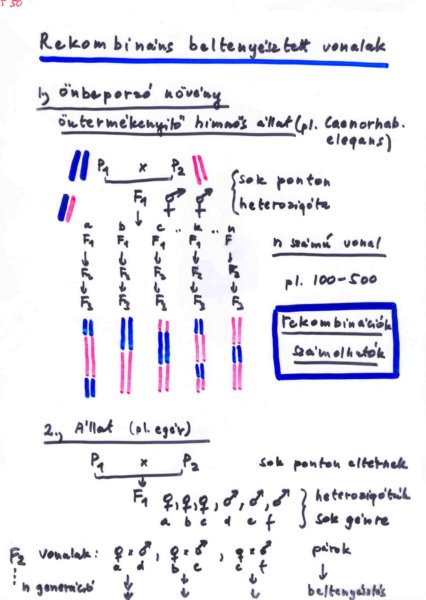 T 50
Rekombináns beltenyésztett vonalak
1., Önbeporzó növény
öntermékenyítő hímnős állat (pl. Caenorhab. elegans)
P1 x P2
F1 ⚥ ⚥ sok ponton heterozigóta
a b c .. k .. n
F1 F1 F1 F1 F
n számú vonal
F2 F2 F2 F2 F2
pl. 100-500
F3 F3 F3 F3 F3
rekombinációk
számolhatók
2., Állat (pl. egér)
P1 x P2
sok ponton eltérnek
F1 ♀, ♀, ♀, ♂, ♂, ♂ heterozigóták
a b c d e f sok génre
F2 vonalak: ♀ x ♂, ♀ x ♂, ♀ x ♂ párok
a d b e c f
n generáció beltenyésztés